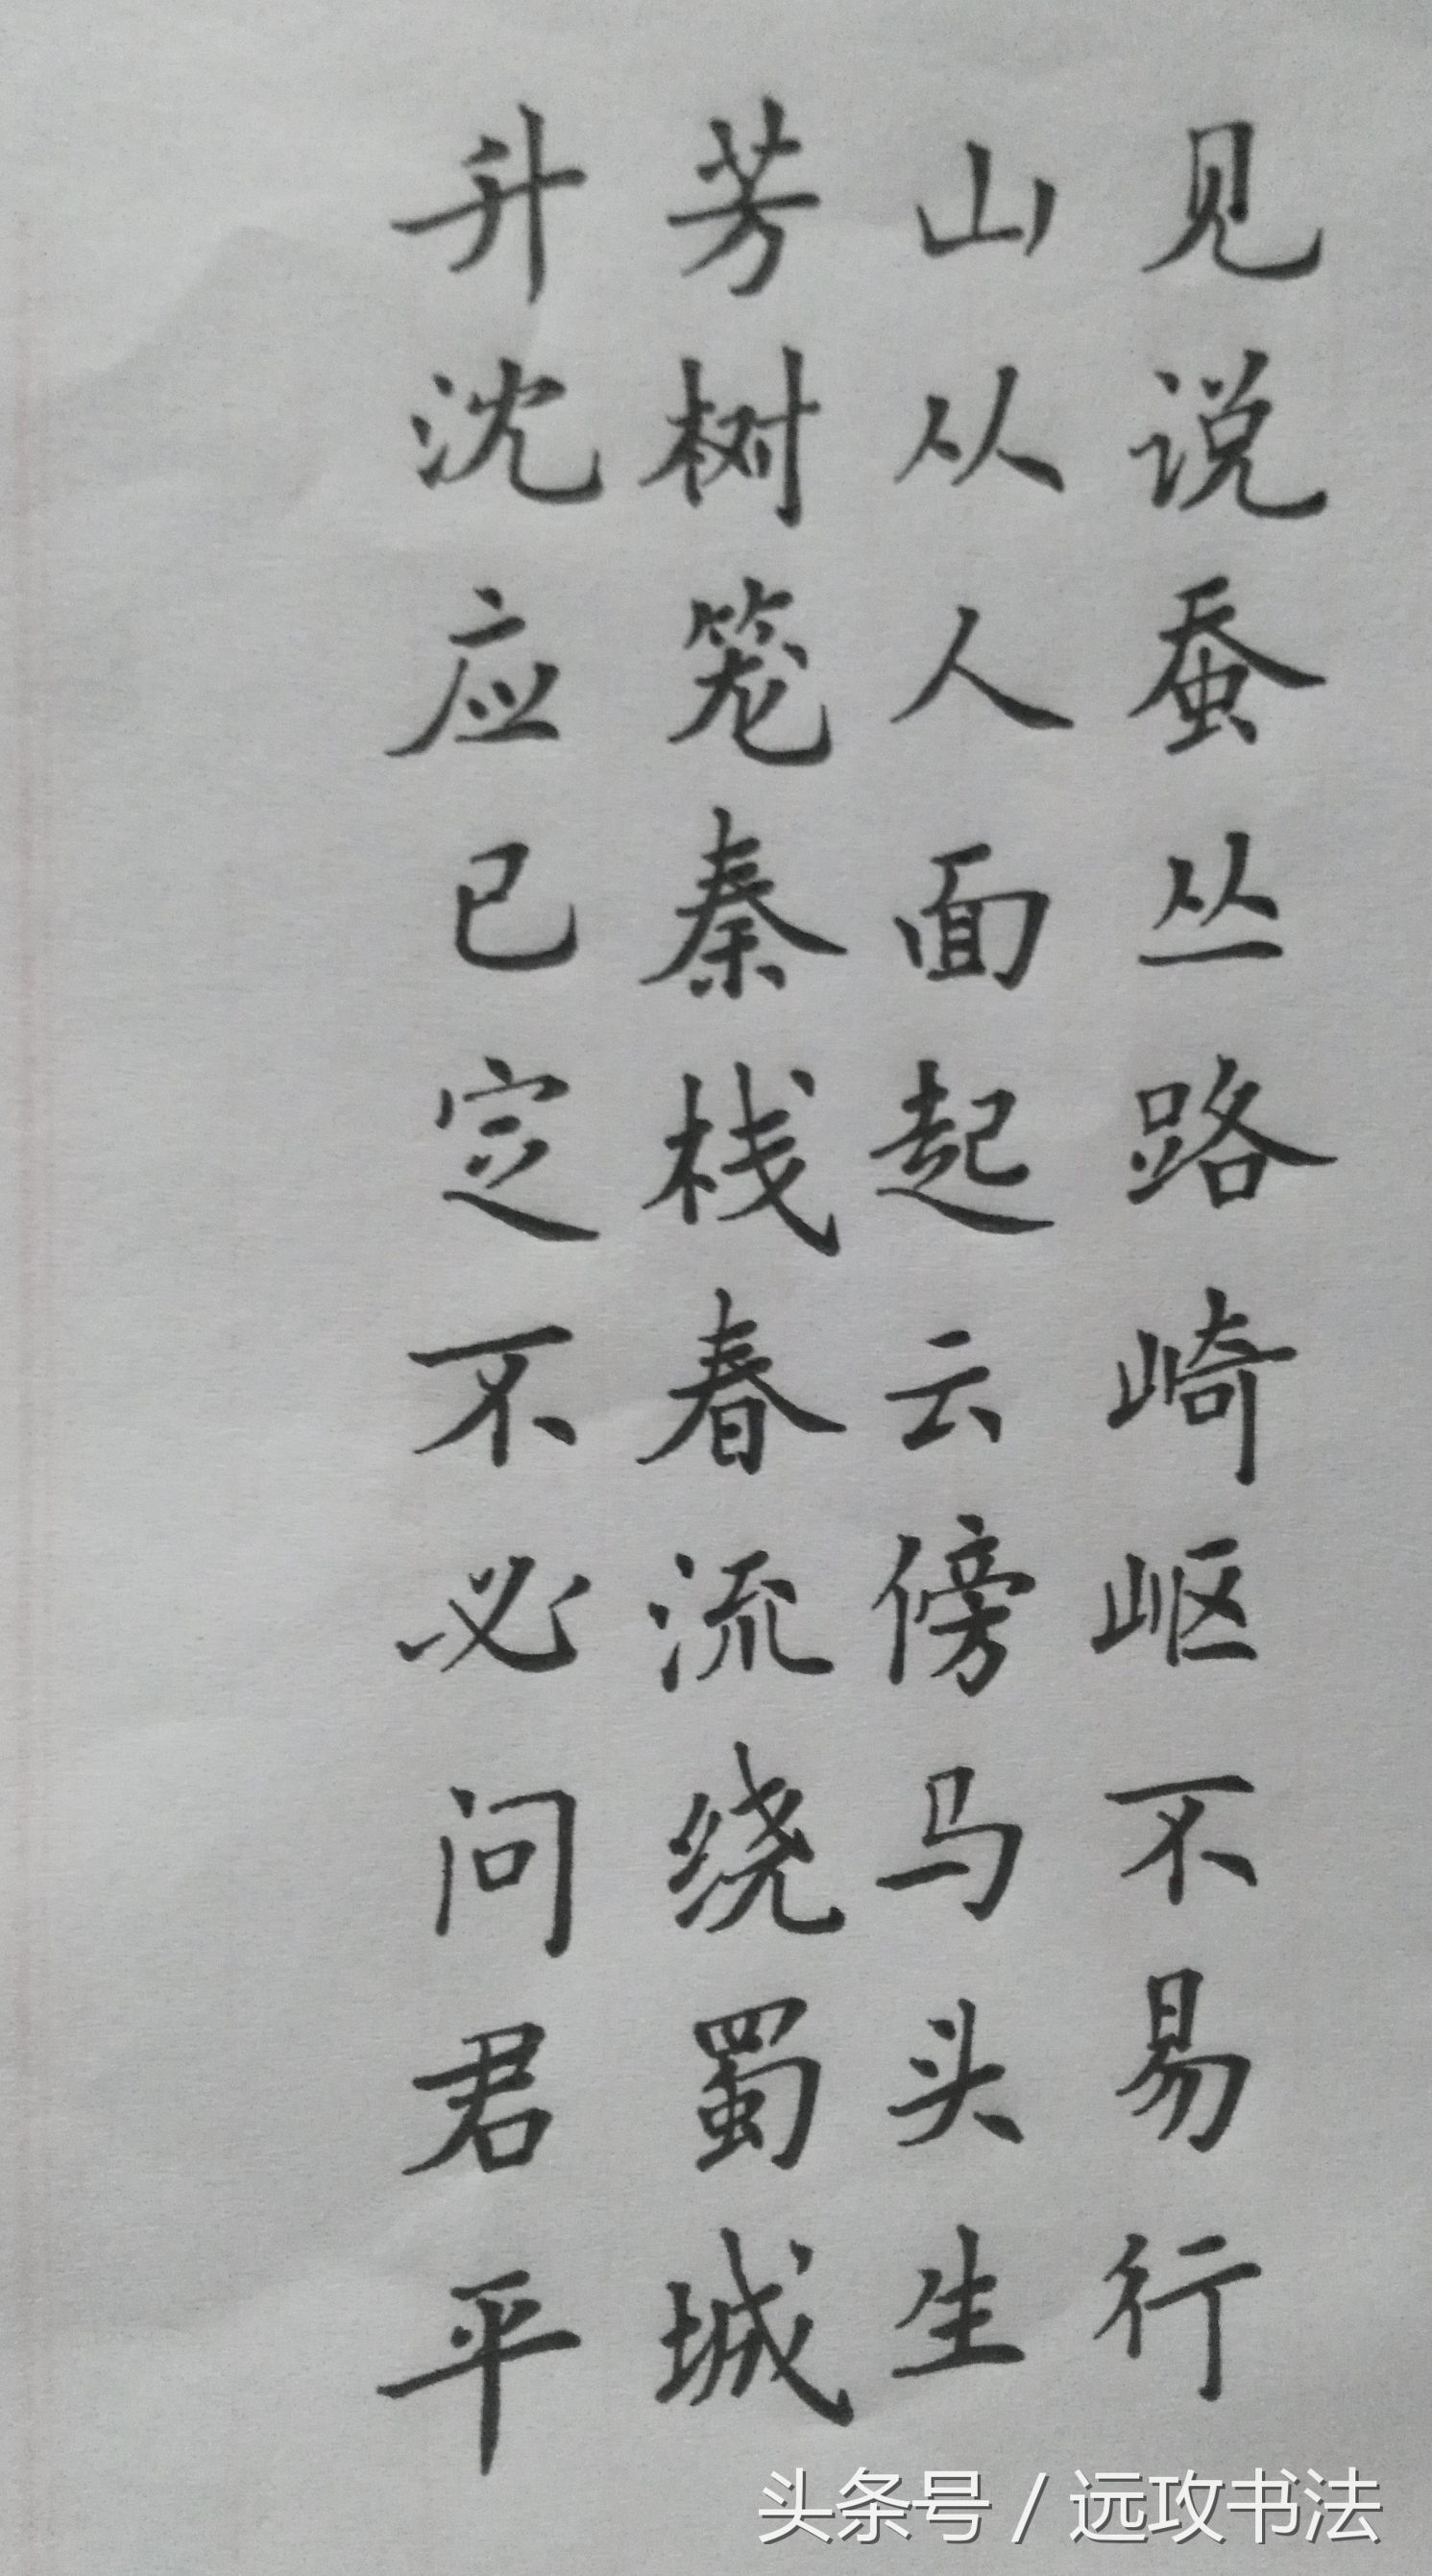 见说蚕丛路崎岖不易行
山从人面起云傍马头生
芳树笼秦栈春流绕蜀城
升沈应已定不必问君平
头条号 / 远攻书法